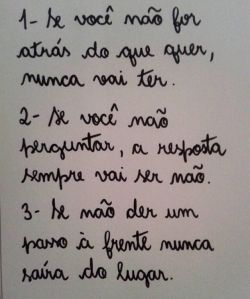 1- Se você não for
atrás do que quer,
nunca vai ter.
2- Se você não
perguntar, a resposta
sempre vai ser não.
3- Se não der um
passo à frente nunca
saíra do lugar.